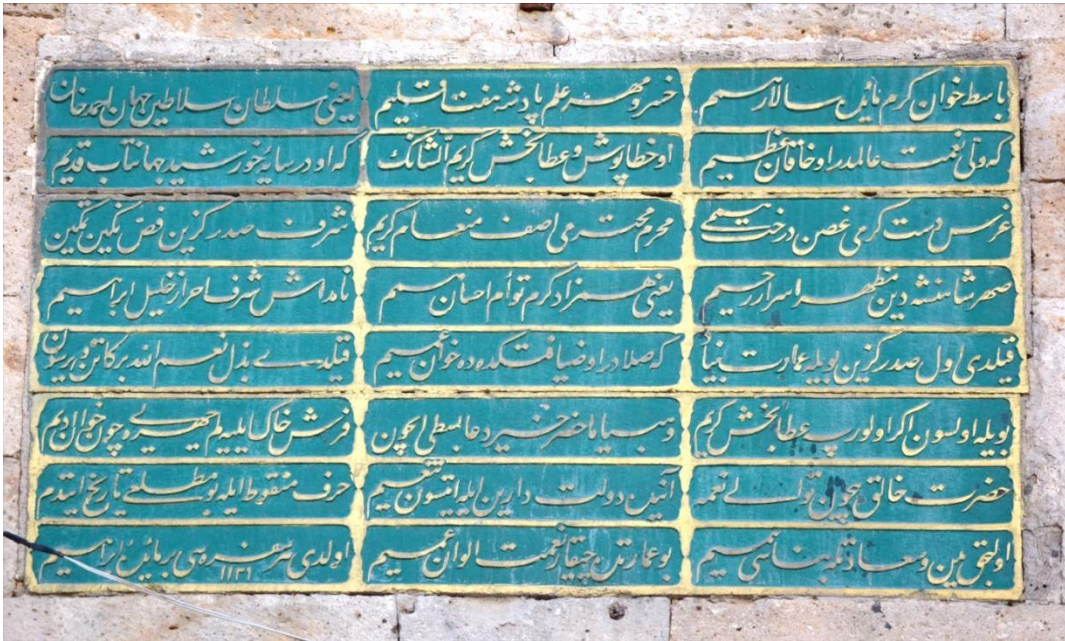 باسط خوان کرم مائین سالار رسیم خسرو مهر علم پادشه هفت اقلیم یعنی سلطان سلاطین جهان احمد خان
که ولی نعمت عالمدر او خاقان عظیم او خطاپوش و عطابخش کریم الشانک که او در سایه خورشید جهانتاب قدیم
غرس دست کرمی غصن درخت محرم محترمی اصف منعام کریم شرف صدر کزین فص نکین تمکین
صهر شاهنشه دین مظهر اسرار رحیم یعنی همزاد کرم توأم احسان نامداش شرف احراز خلیل ابراهیم
قیلدی اول صدر کزین بویله عمارت بنیاد که صلا در او ضیافتکده ده خوان عمیم قیلدی بذل نعم الله برکاتن ویرسون
بویله اولسون اکر اولورسه عطابخش کریم وسیاما خضر خیر دعا بسطی ایچون فرش خاک ایلیه لم چهره چون خوان ادیم
حضرت خالق بیچون توالی نعمه آنین دولت دارین ایله ایتسون تنعیم حرف منقوط ایله بو مطلعی تاریخ ایتدم
اولیجق یمن و سعادتله بناسی بو عمارتدن چیقار نعمت الوان عمیم اولدی هر سفره سی بر مائده ابراهیم
١١٣١